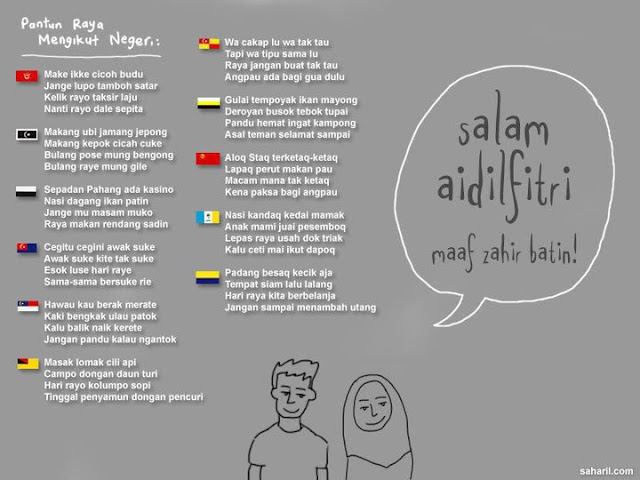 Pantun Raya
Mengikut Negeri:
Make ikke cicoh budu
Jange lupo tamboh satar
Kelik rayo taksir laju
Nanti rayo dale sepita
Makang ubi jamang jepong
Makang kepok cicah cuke
Bulang pose mung bengong
Bulang raye mung gile
Sepadan Pahang ada kasino
Nasi dagang ikan patin
Jange mu masam muko
Raya makan rendang sadin
Cegitu cegini awak suke
Awak suke kite tak suke
Esok luse hari raye
Sama-sama bersuke rie
Hawau kau berak merate
Kaki bengkak ulau patok
Kalu balik naik kerete
Jangan pandu kalau ngantok
Masak lomak cili api
Campo dongan daun turi
Hari rayo kolumpo sopi
Tinggal penyamun dongan pencuri
Wa cakap lu wa tak tau
Tapi wa tipu sama lu
Raya jangan buat tak tau
Angpau ada bagi gua dulu
Gulai tempoyak ikan mayong
Deroyan busok tebok tupai
Pandu hemat ingat kampong
Asal teman selamat sampai
Aloq Staq terketaq-ketaq
Lapaq perut makan pau
Macam mana tak ketaq
Kena paksa bagi angpau
Nasi kandaq kedai mamak
Anak mami juai pesemboq
Lepas raya usah dok triak
Kalu ceti mai ikut dapoq
Padang besaq kecik aja
Tempat siam lalu lalang
Hari raya kita berbelanja
Jangan sampai menambah utang
salam
aidilfitri
maaf zahir batin!
saharil.com